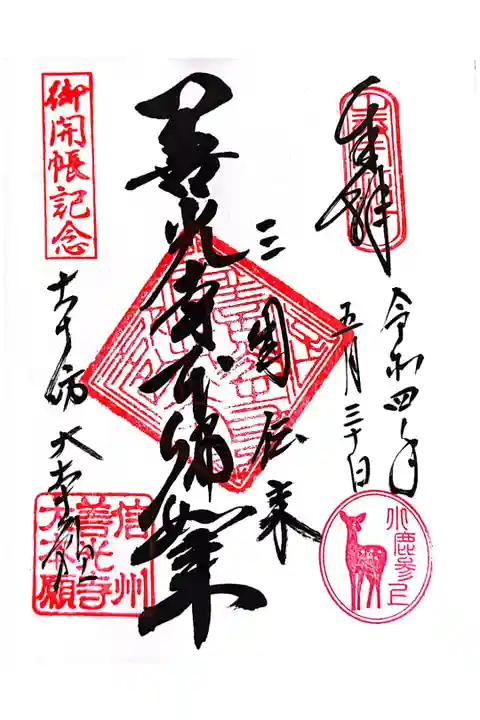 奉拝
令和四年
五月三十日
小鹿参上
三国伝来
善光寺本師如来
御開帳記念
大本願
信州
善光寺
大本願